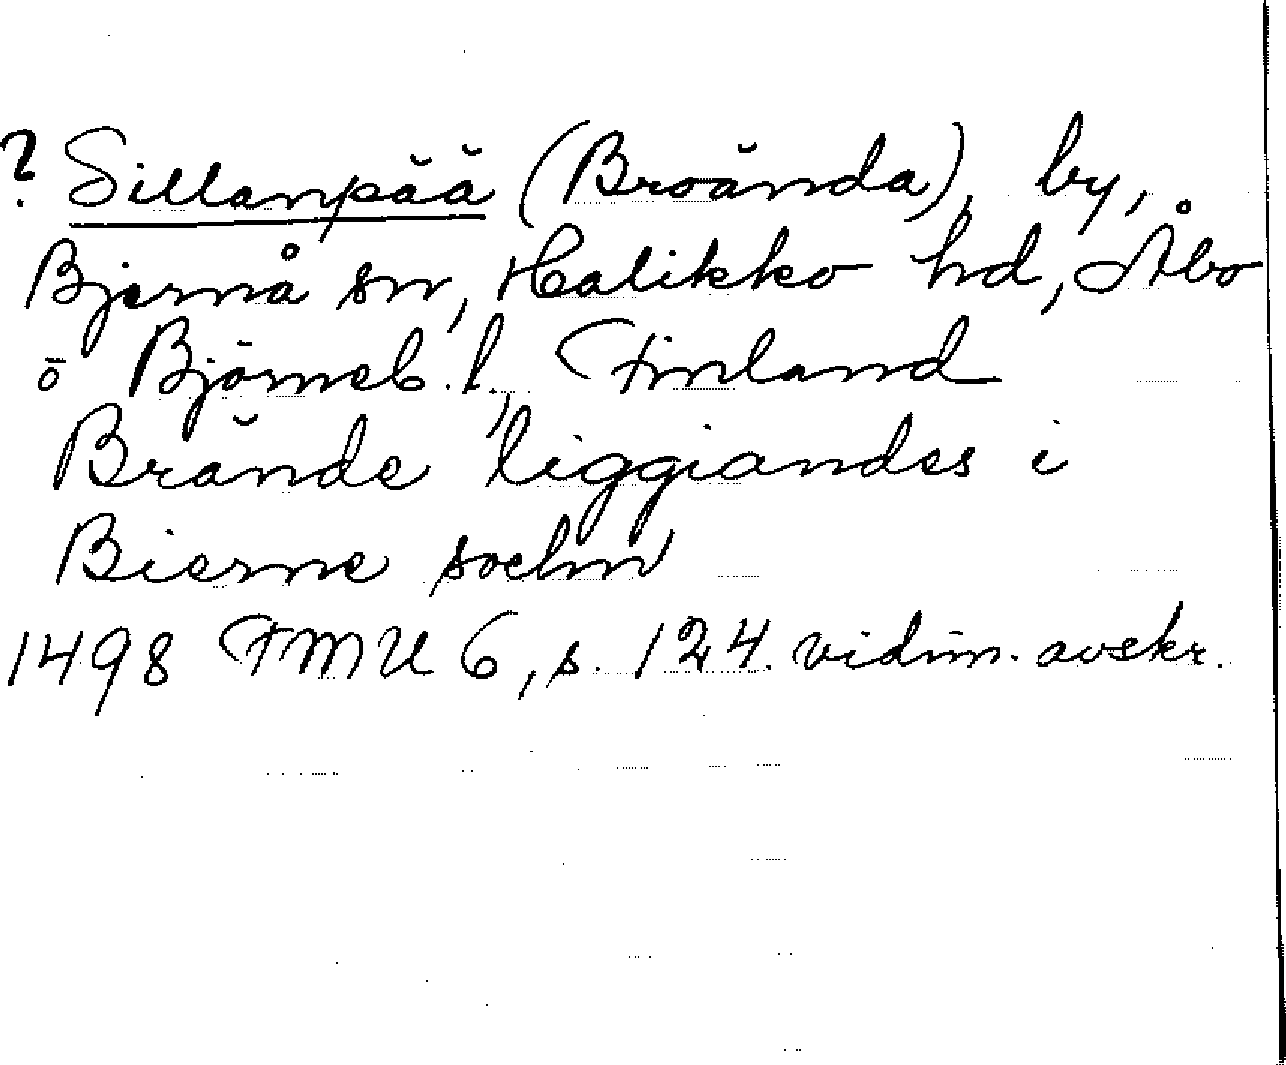 ? Sillanpää (Broända), by,
Bjernå sn, Halikko hd, Åbo
o Björneb. l., Finland
Brände liggiandes i
Bierne sochn
1498 FMU 6, s. 124. vidim. avskr.